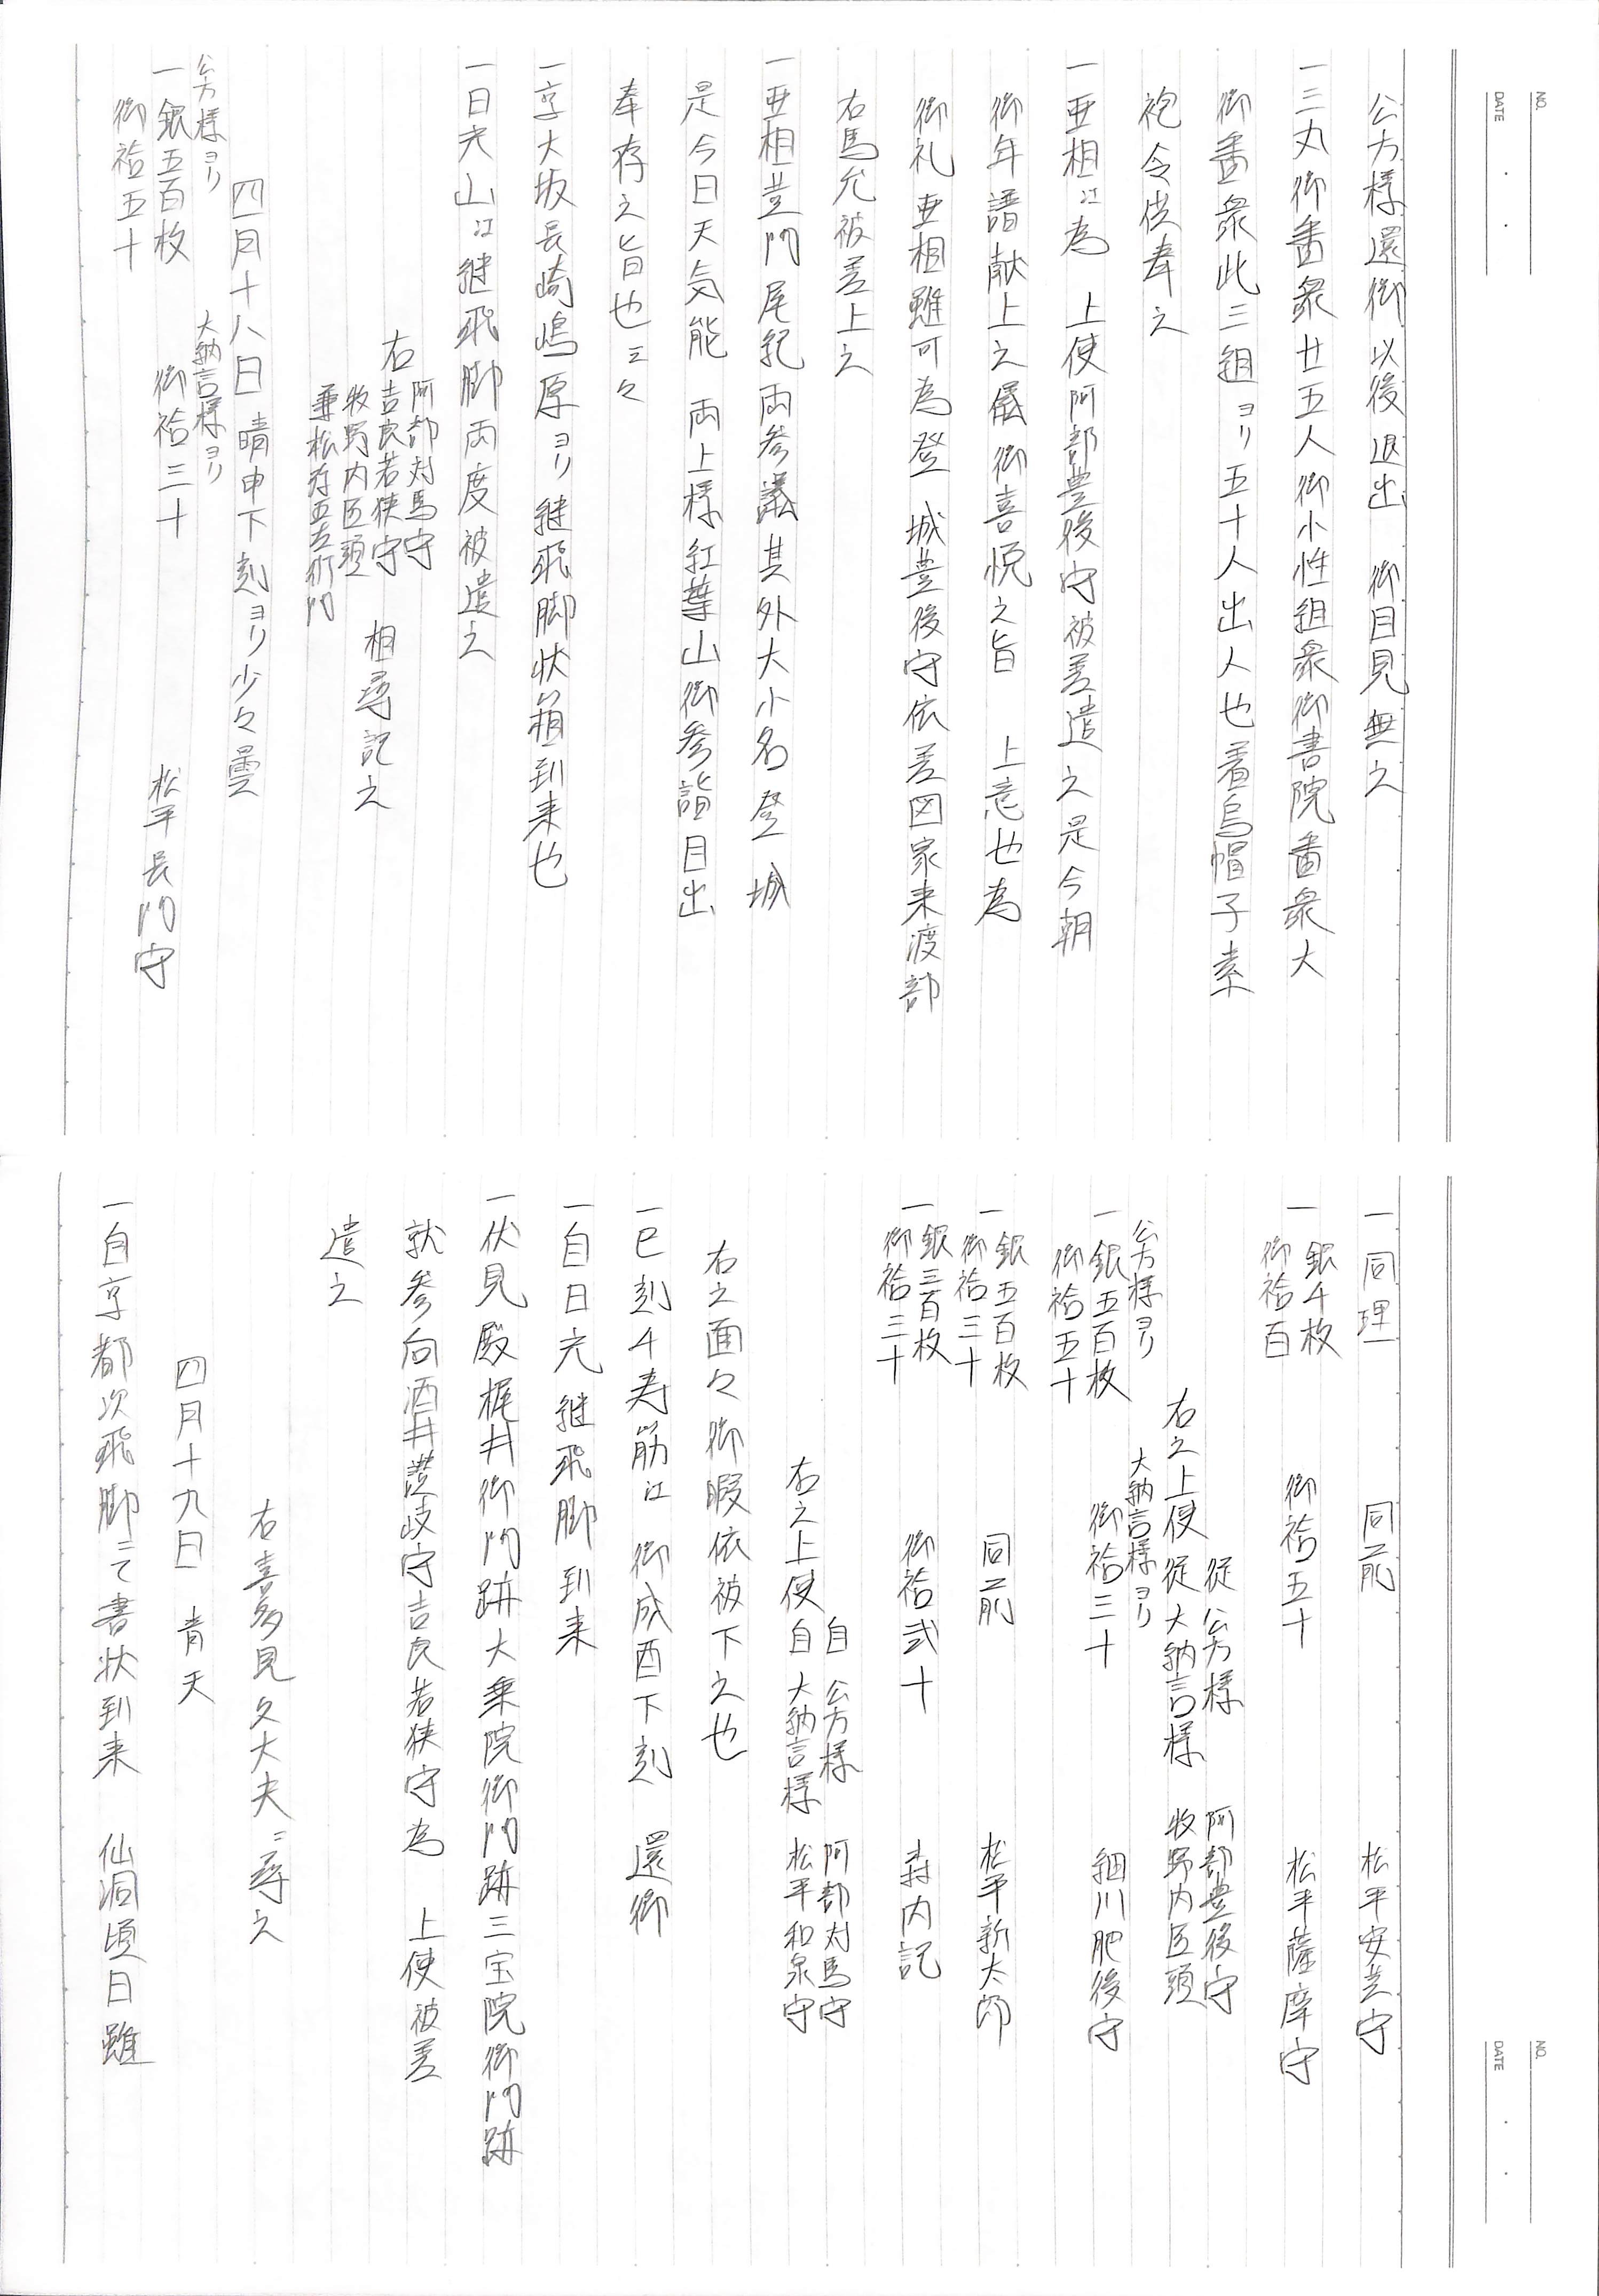 公方様還御以後退出　御目見無之
一三丸御番衆廿五人御小性組衆御書院番衆大
御番衆此三組ヨリ五十人出人也着烏帽子素
袍令供奉之
一亜相江為　上使阿部豊後守被差遣之是今朝
御年譜献上之儀御喜悦之旨　上意也為
御礼亜相雖可為登　城豊後守依差図家来渡部
右馬允被差上之
一亜相並門尾紀両参議其外大小名登　城
是今日天気能　両上様紅葉山御参詣目出
奉存之旨也云々
一京大坂長崎嶋原ヨリ継飛脚状箱到来也
一日光山江継飛脚両度被遣之
右
阿部対馬守
吉良若狭守
牧野内匠頭
兼松弥五左衛門
相尋記之
四月十八日　晴申下刻ヨリ少々曇
公方様ヨリ　大納言様ヨリ
一銀五百枚
御袷五十
御袷三十
松平長門守
NO.
DATE
一同理　同前　松平安芸守
一銀千枚
御袷百
御袷五十
松平薩摩守
右之上使
従　公方様　阿部豊後守
従　大納言様　牧野内匠頭
公方様ヨリ　大納言様ヨリ
一銀五百枚
御袷五十
御袷三十
細川肥後守
一銀五百枚
御袷三十
同前
松平新太郎
一銀三百枚
御袷三十
御袷弐十
森内記
右之上使
自　公方様　阿部対馬守
自　大納言様　松平和泉守
右之面々御暇依被下之也
一巳刻千寿筋江　御成酉下刻　還御
一自日光継飛脚到来
一伏見殿梶井御門跡大乗院御門跡三宝院御門跡
就参向酒井讃岐守吉良若狭守為　上使被差
遣之
右喜多見久大夫ニ尋之
四月十九日　青天
一自京都次飛脚ニて書状到来　仙洞頃日雖
NO.
DATE